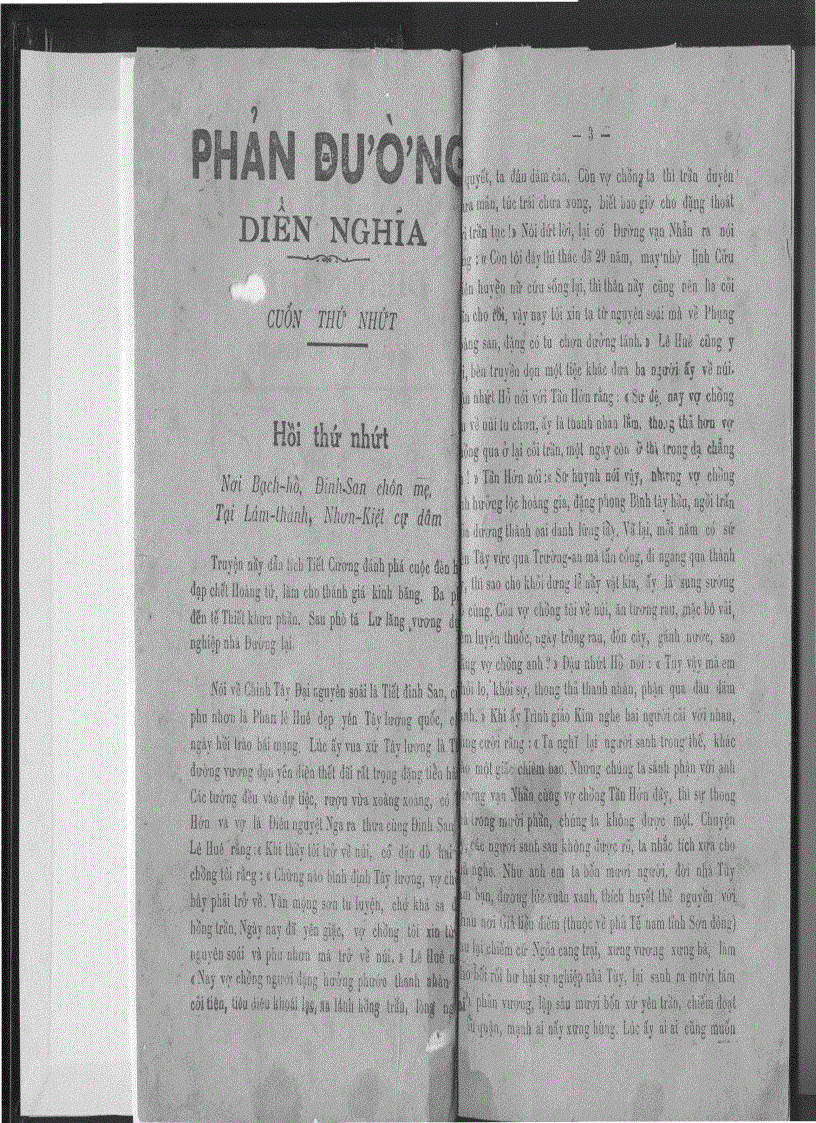 PHẢN ĐƯỜNG
DIỄN NGHĨA
CUỐN THỨ NHỨT
Hồi thứ nhứt
Nơi Bạch-hổ, Đinh-San chôn mẹ,
Tại Lâm-thành, Nhơn-Kiệt cự dâm
Truyện nầy dẫn tích Tiết Cương đánh phá cuộc đèn
đạp chết Hoàng tử, làm cho thánh giá kinh băng. Ba
đến tế Thiết khưu phần. Sau phò tá Lư lăng vương
nghiệp nhà Đường lại.
Nói về Chinh Tây Đại nguyên soái là Tiết đinh San,
phu nhơn là Phàn lê Huê dẹp yên Tây lương quốc,
ngày hồi trào bái mạng. Lúc ấy vua xứ Tây lương là
đường vương dọn yến diên thết đãi rất trọng đặng tiễn
Các tướng đều vào dự tiệc, rượu vừa xoàng xoàng, có
Hớn và vợ là Điêu nguyệt Nga ra thưa cùng Đinh San
Lê Huê rằng: « Khi thầy tôi trở về núi, có dặn dò hai
chồng tôi rằng: « Chừng nào bình định Tây lương, vợ
bây phải trở về. Vân mộng sơn tu luyện, chớ khá sa
hồng trần. Ngày nay đã yên giặc, vợ chồng tôi xin từ
nguyên soái và phu nhơn mà trở về núi. » Lê Huê
« Nay vợ chồng ngươi đặng hưởng phước thanh nhàn
cõi tiên, tiêu diêu khoái lạc, xa lánh hồng trần, lòng
— 3 —
quyết, ta đâu dám cản. Còn vợ chồng ta thì trần duyên
mãn, túc trái chưa xong, biết bao giờ cho đặng thoát
trần tục! » Nói dứt lời, lại có Đường vạn Nhẫn ra nói
: « Còn tôi đây thì thác đã 29 năm, may nhờ lịnh Cửu
huyền nữ cứu sống lại, thì thân nầy cũng nên lìa cõi
cho rồi, vậy nay tôi xin tạ từ nguyên soái mà về Phụng
san, đặng có tu chơn dưỡng tánh. » Lê Huê cũng y
, bèn truyền dọn một tiệc khác đưa ba người ấy về núi.
nhứt Hổ nói với Tần Hớn rằng: « Sư đệ, nay vợ chồng
về núi tu chơn, ấy là thanh nhàn lắm, thong thả hơn vợ
qua ở lại cõi trần, một ngày còn ở thì trong dạ chẳng
! » Tần Hớn nói: « Sư huynh nói vậy, nhưng vợ chồng
hưởng lộc hoàng gia, đặng phong Bình tây hầu, ngồi trấn
dương thành oai danh lừng lẫy. Vả lại, mỗi năm có sứ
Tây vức qua Trường-an mà tấn cống, đi ngang qua thành
, thì sao cho khỏi dưng lễ nầy vật kia, ấy là sung sướng
cùng. Còn vợ chồng tôi về núi, ăn tương rau, mặc bô vải,
luyện thuốc, ngày trồng rau, đốn cây, gánh nước, sao
vợ chồng anh? » Đậu nhứt Hổ nói: « Tuy vậy mà em
lo, khỏi sợ, thong thả thanh nhàn, phận qua đâu dám
. » Khi ấy Trình giảo Kim nghe hai người cãi với nhau,
cười rằng: « Ta nghĩ lại người sanh trong thế, khác
một giấc chiêm bao. Nhưng chúng ta sánh phận với anh
vạn Nhẫn cùng vợ chồng Tần Hớn đây, thì sự thong
trong mười phần, chúng ta không được một. Chuyện
, các ngươi sanh sau không được rõ, ta nhắc tích xưa cho
nghe. Như anh em ta bốn mươi người, đời nhà Tùy
, đương lúc xuân xanh, thích huyết thề nguyền với
nhau nơi Giả liễu điếm (thuộc về phủ Tế nam tỉnh Sơn đông)
lại chiếm cứ Ngõa cang trại, xưng vương xưng bá, làm
bối rối hư hại sự nghiệp nhà Tùy, lại sanh ra mười tám
phản vương, lập sáu mươi bốn xứ yên trần, chiếm đoạt
quận, mạnh ai nấy xưng hùng. Lúc ấy ai ai cũng muốn